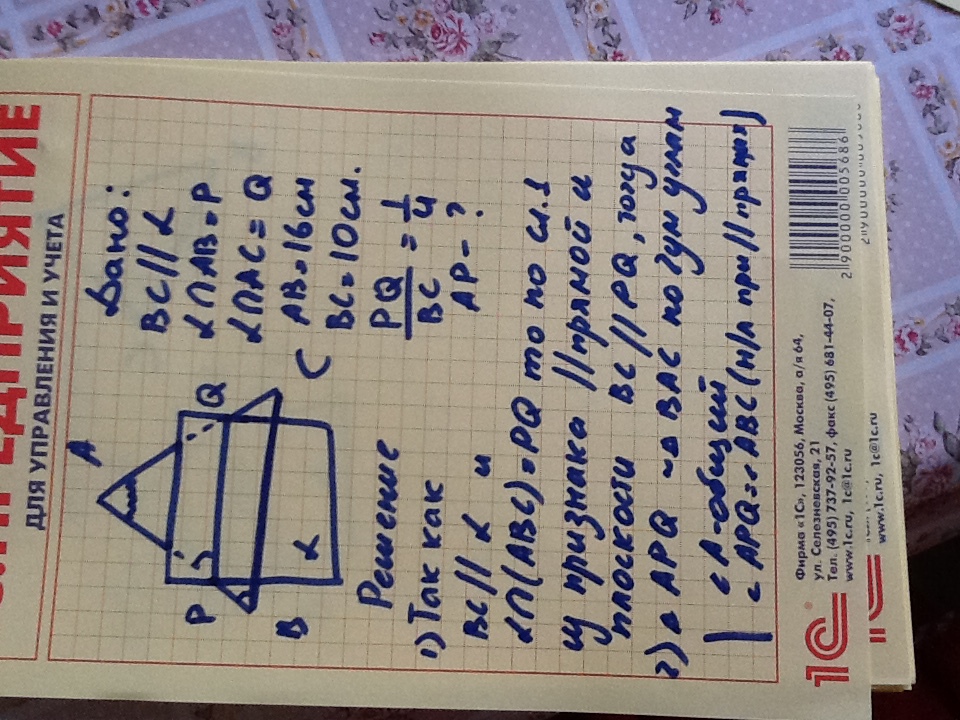 ПРЕДПРИЯТИЕ
ДЛЯ УПРАВЛЕНИЯ И УЧЕТА
Дано:
BC // α
α∩AB=P
α∩AC=Q
AB=16см
BC=10см.
PQ/BC = 1/4
AP - ?
A
P
Q
B
α
C
Решение
1) Так как
BC // α и
α∩(ABC)=PQ то по сл. 1
из признака // прямой и
плоскости BC // PQ, тогда
2) △ APQ ~ △ BAC по 2ум углам
∠ A-общий
∠ APQ=∠ ABC (н/л при // прямых)
1С
Фирма «1С», 123056, Москва, а/я 64,
ул. Селезневская, 21
Тел. (495) 737-92-57, факс (495) 681-44-07,
www.1c.ru, 1c@1c.ru
2 900000 005686
www.1c.ru, 1c@1c.ru